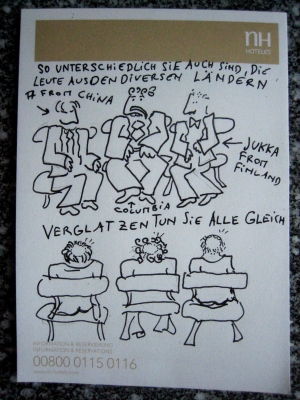 nH
HOTELES
SO UNTERSCHIEDLICH SIE AUCH SIND, DIE
LEUTE AUS DEN DIVERSEN LÄNDERN
FROM CHINA
JUKKA
FROM
FINLAND
COLUMBIA
VERGLATZEN TUN SIE ALLE GLEICH
INFORMATION & RESERVIERUNG
INFORMATION & RESERVATIONS
00800 0115 0116